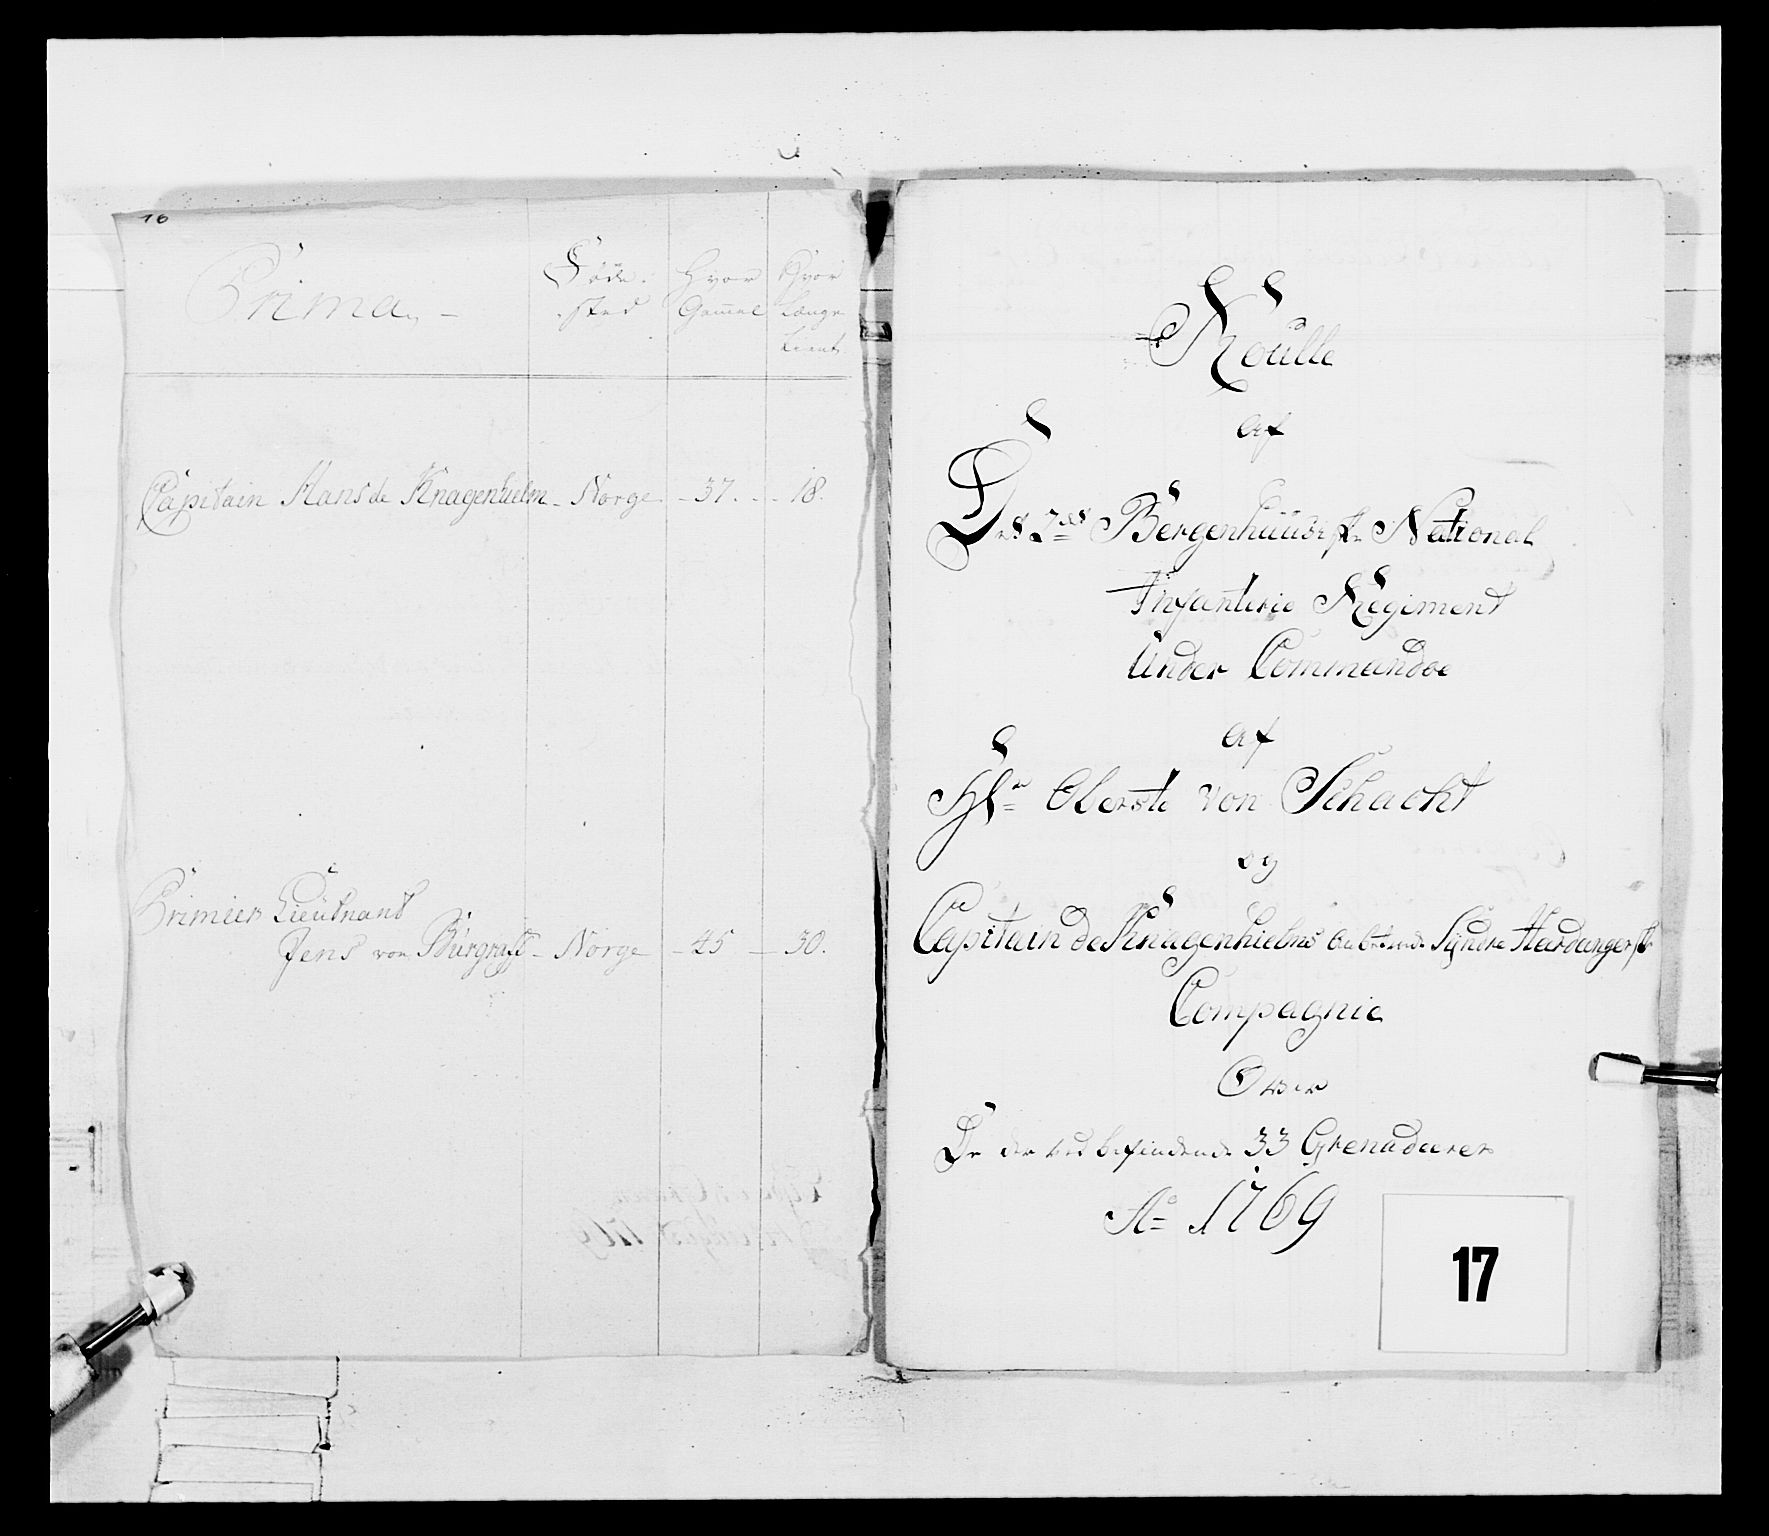 16
Prima
Føde-
sted
Hvor
Gammel
Hvor
Længe
Tient
Capitain Hans de Knagenhielm - Norge - 37. - 18.
Primier Lieutnant
Jens von Bürgraff - Norge - 45 - 30.
Roulle
af
Des 2det Bergenhuusiske National
Infanterie Regiment
Under Commandoe
af
Hr. Oberste von Schacht
og
Capitain de Knagenhielms Søndre Hardangerske
Compagnie
Over
De der ved befindende 33 Grenaderer
Ao 1769
17